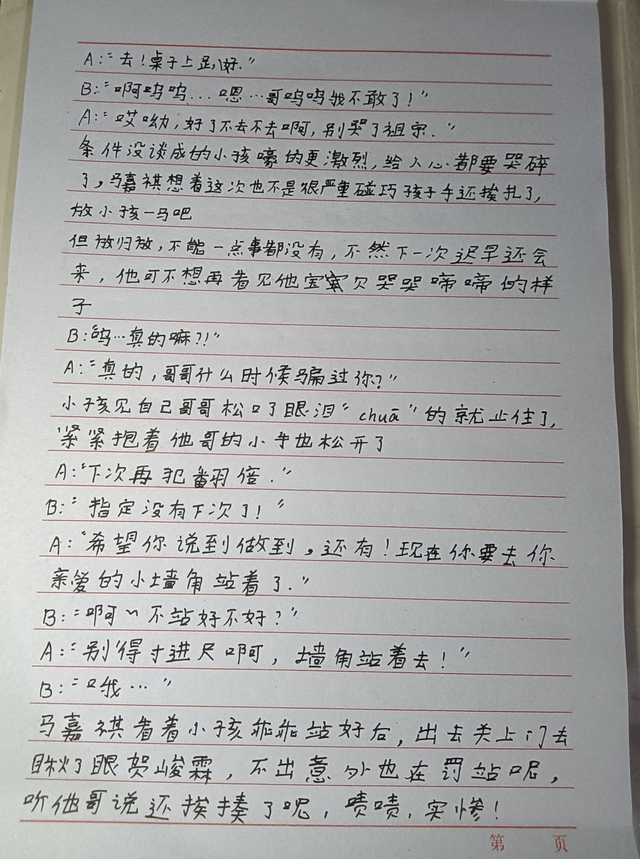 A:“去！桌子上趴好.”
B:“啊呜呜...嗯…哥呜呜我不敢了！”
A:“哎呦,好了不去不去啊,别哭了祖宗.”
条件没谈成的小孩嚎的更激烈,给人心都要哭碎
了,马嘉祺想着这次也不是很严重碰巧孩子手还挨扎了,
放小孩一马吧
但放归放,不能一点事都没有,不然下一次迟早还会
来,他可不想再看见他宝贝哭哭啼啼的样
子
B:“呜…真的嘛?!”
A:“真的,哥哥什么时候骗过你?”
小孩见自己哥哥松口了眼泪“chuā”的就止住了,
紧紧抱着他哥的小手也松开了
A:“下次再犯翻倍.”
B:“指定没有下次了!”
A:“希望你说到做到。还有!现在你要去你
亲爱的小墙角站着了.”
B:“啊~不站好不好?”
A:“别得寸进尺啊,墙角站着去!”
B:“哦…”
马嘉祺看着小孩乖乖站好后,出去关上门去
瞅了眼贺峻霖,不出意外也在罚站呢,
听他哥说还挨揍了呢,啧啧,实惨!
第 页